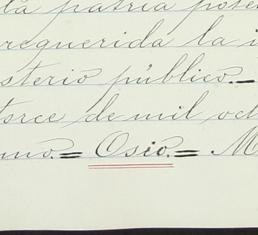 la patria pote
requerida la i
sterio público.=
torce de mil oct
uno.= Osio.= M